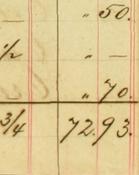 " 50.
1/2 " —
" 70.
3/4 72.93.